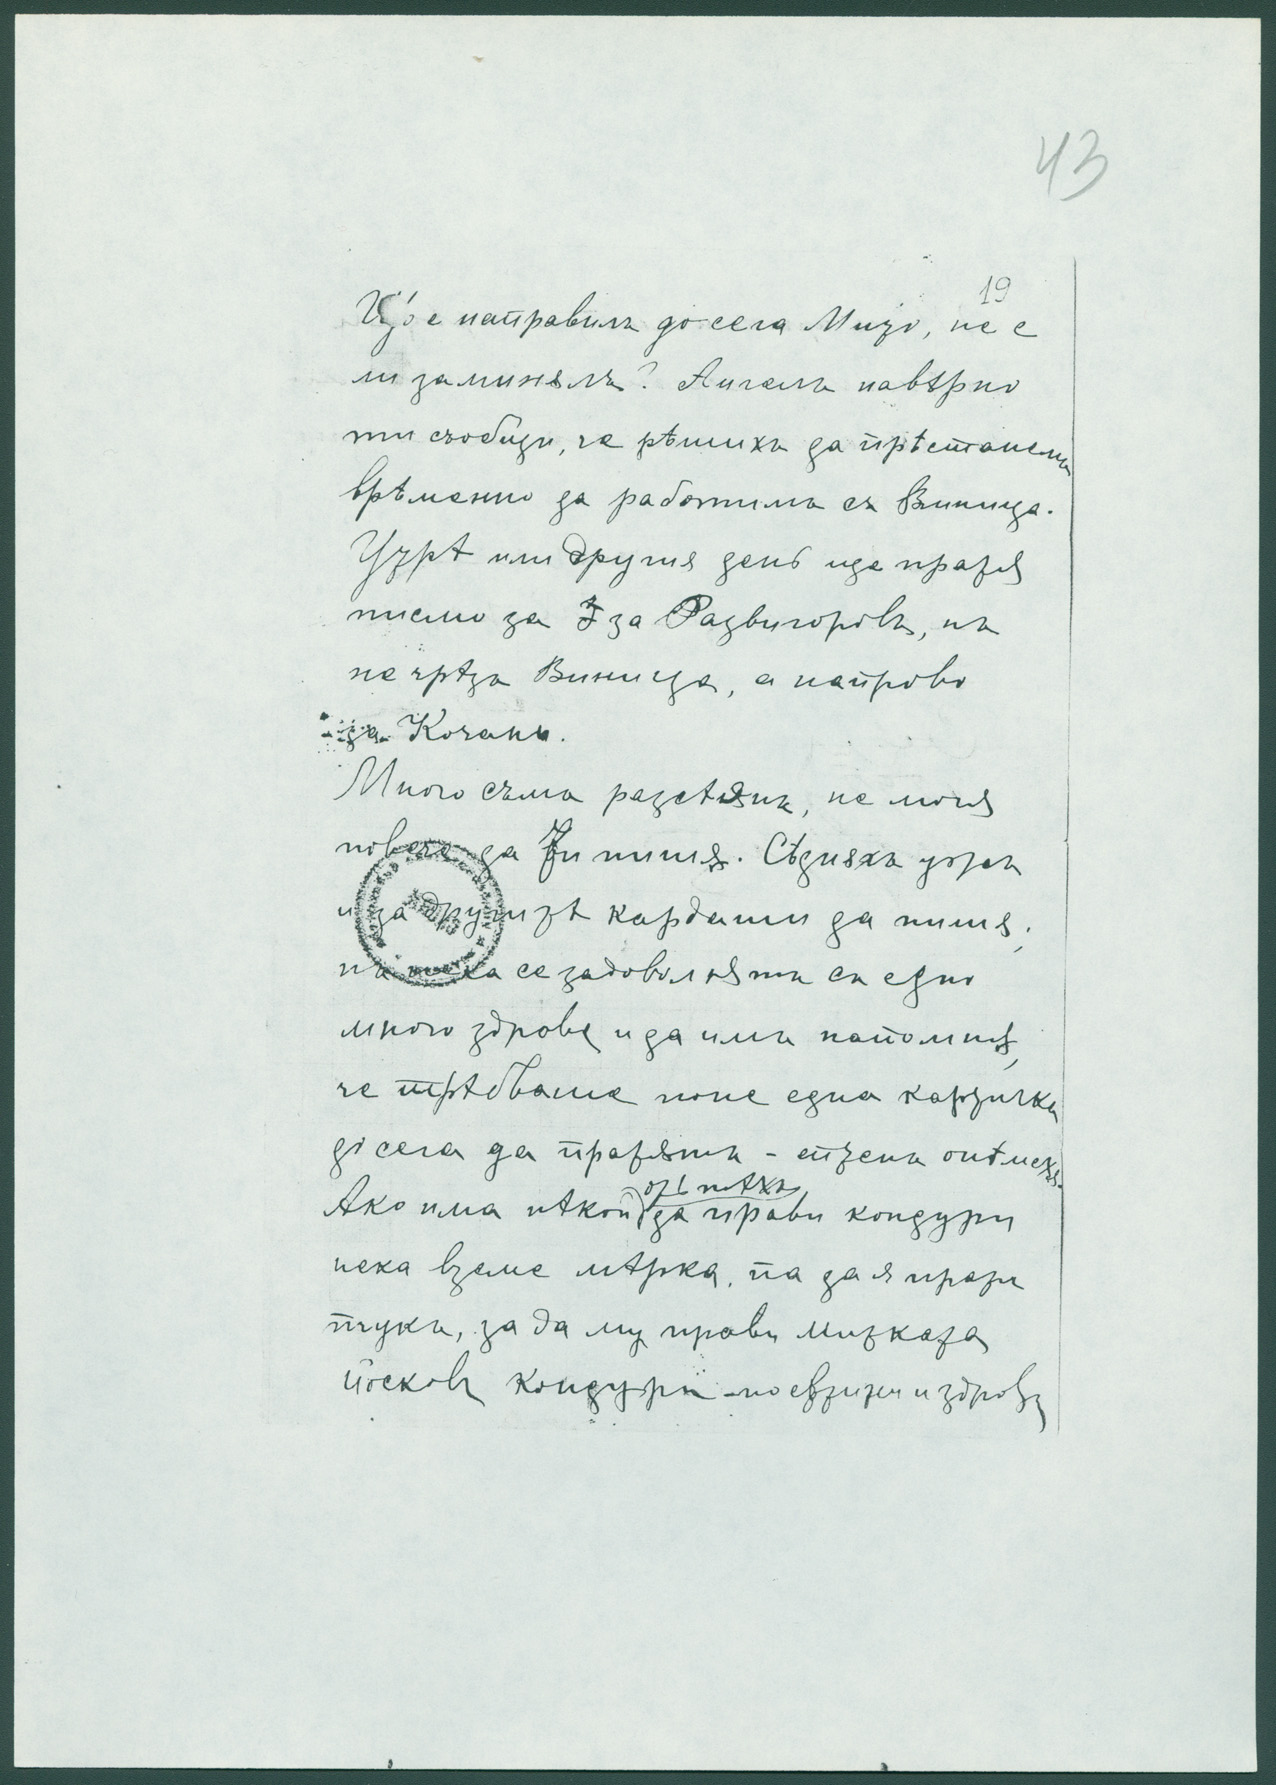 43
19
Що е направилъ до сега Мицо, не е
ли заминялъ? Ангелъ навѣрно
ти съобщи, че рѣшихъ да прѣстанемъ
врѣменно да работимъ съ Виница.
Утрѣ или другия день ще пратя
писмо за за Развигорова, нъ
не чрѣзъ Виница, а направо
за Кочани.
Много съмъ разсѣянъ, не могя
повече да ти пишя. Сѣдняхъ ужъ
и за другитѣ кардаши да пишя,
нъ нека се задоволятъ съ едно
много здраве и да имъ напомня,
че трѣбваше поне една картичка
до сега да пратятъ -
отъ тѣхъ
Ако има нѣкой да прави кондури
нека вземе мѣрка, па да я прати
тука, за да му прави Митката
кондури - по евтини и здрави